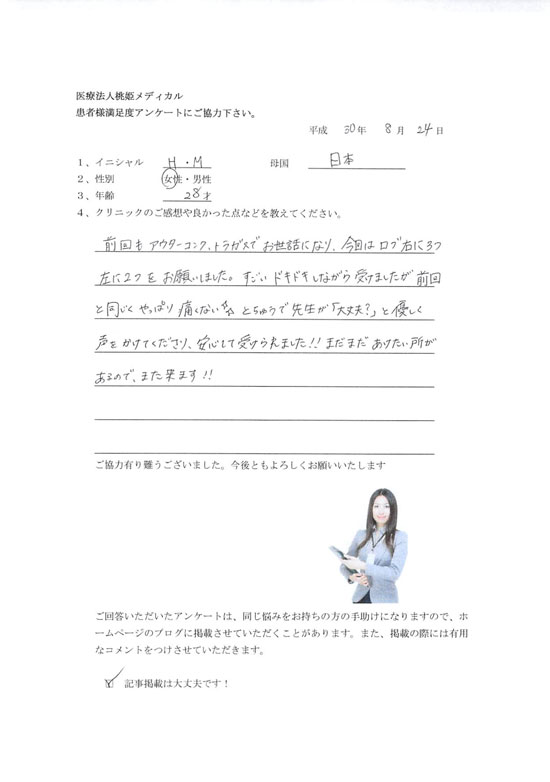 医療法人桃姫メディカル
患者様満足度アンケートにご協力下さい。
平成 30年 8月 24日
1、イニシャル H・M 母国 日本
2、性別 女性・男性
3、年齢 28才
4、クリニックのご感想や良かった点などを教えてください。
前回もアウターコンク、トラガスでお世話になり、今回はロブ右に3つ
左に2つをお願いしました。すごいドキドキしながら受けましたが前回
と同じくやっぱり痛くない☆☆とちゅうで先生が「大丈夫?」と優しく
声をかけてくださり、安心して受けられました!!まだまだあけたい所が
あるので、また来ます!!
ご協力有り難うございました。今後ともよろしくお願いいたします
ご回答いただいたアンケートは、同じ悩みをお持ちの方の手助けになりますので、ホ
ームページのブログに掲載させていただくことがあります。また、掲載の際には有用
なコメントをつけさせていただきます。
☑ 記事掲載は大丈夫です!